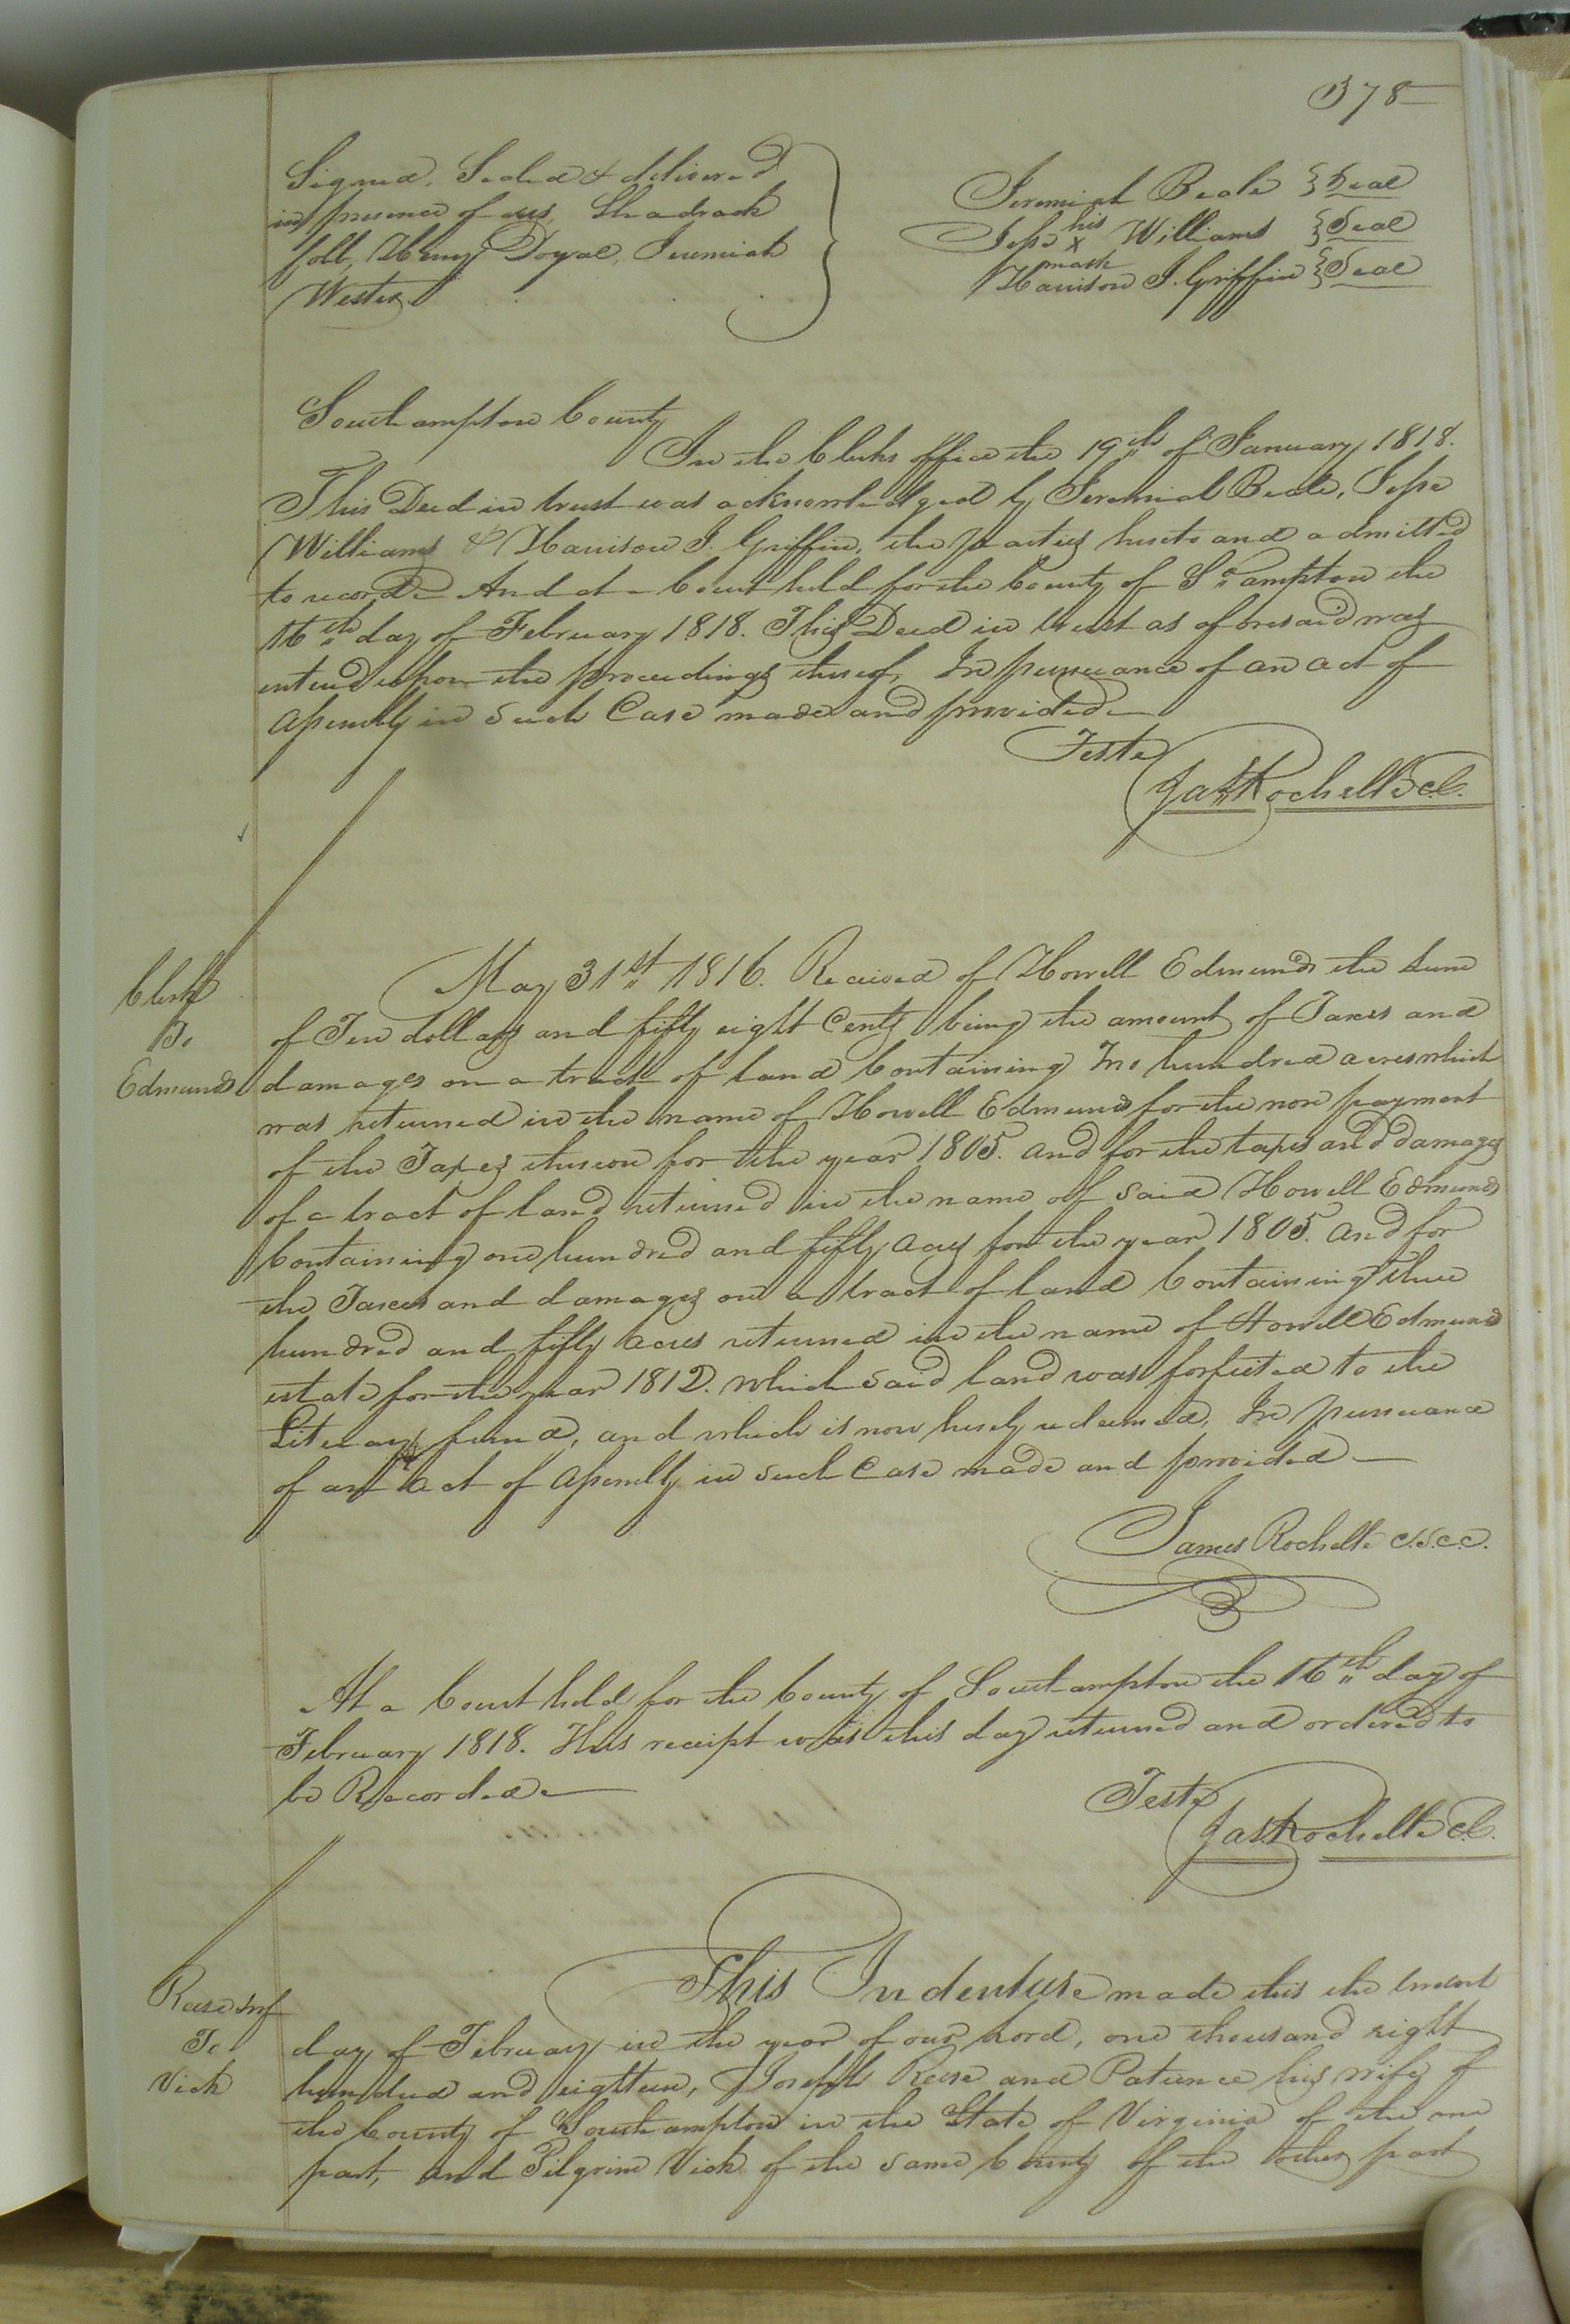 378
Signed, Sealed & delivered
in presence of us, Shadrack
Cobb, Henry Doyal, Jeremiah
Wester
Jeremiah Beale {Seal
his
Jesse x Williams {Seal
mark
Harrison J. Griffin {Seal
Southampton County
In the Clerks office the 19th of January 1818.
This Deed in trust was acknowledged by Jeremiah Beale, Jesse
Williams & Harrison J. Griffin, the parties hereto and admitted
to record. And at a Court held for the County of So.ampton the
16th day of February 1818. This Deed in trust as aforesaid was
entered upon the proceedings thereof, In pursuance of an act of
Assembly in such Case made and provided
Teste
Jas. Rochelle CC.
Clerk
To
Edmunds
May 31st 1816. Received of Howell Edmunds the Sum
of Ten dollars and fifty eight Cents being the amount of Taxes and
damages on a tract of land Containing Two hundred acres which
was returned in the name of Howell Edmunds for the non payment
of the Taxes thereon for the year 1805. and for the taxes and damages
of a tract of land returned in the name of said Howell Edmunds
Containing one hundred and fifty acres for the year 1805. and for
the Taxes and damages on a tract of land Containing three
hundred and fifty acres returned in the name of Howell Edmunds
estate for the year 1812. which said land was forfeited to the
Literary fund, and which is now hereby redeemed, In pursuance
of an act of Assembly in such Case made and provided
James Rochelle C.S.C.C.
At a Court held for the County of Southampton the 16th day of
February 1818. This receipt was this day returned and ordered to
be Recorded
Teste
Jas. Rochelle CC.
Reese &wf
To
Vick
This Indenture made this the
day of February in the year of our Lord, one thousand eight
hundred and eighteen, Joseph Reese and Patience his wife of
the County of Southampton in the State of Virginia of the one
part, and Pilgrim Vick of the same County of the other part